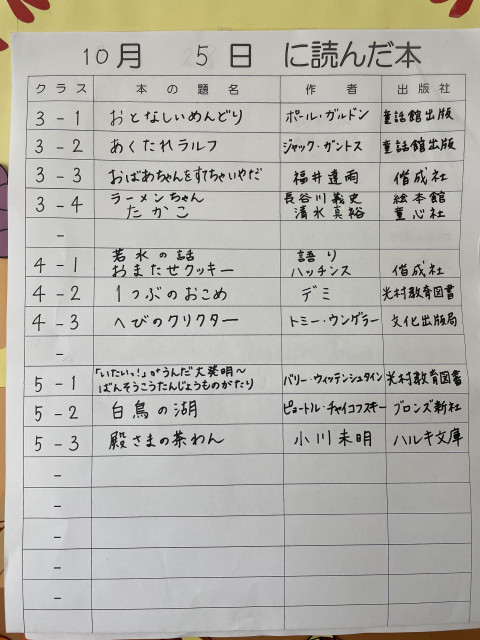 10月 5日 に読んだ本
クラス 本の題名 作者 出版社
3-1 おとなしいめんどり ポール・ガルドン 童話館出版
3-2 あくたれラルフ ジャック・ガントス 童話館出版
3-3 おばあちゃんをすてちゃいやだ 福井達雨 偕成社
3-4 ラーメンちゃん 長谷川義史 絵本館
たかこ 清水真裕 童心社
-
4-1 若水の話 語り
おまたせクッキー ハッチンス 偕成社
4-2 1つぶのおこめ デミ 光村教育図書
4-3 へびのクリクター トミー・ウングラー 文化出版局
-
5-1 「いたいっ!」がうんだ大発明～
ばんそうこうたんじょうものがたり バリー・ウィッテンシュタイン 光村教育図書
5-2 白鳥の湖 ピョートル・チャイコフスキー ブロンズ新社
5-3 殿さまの茶わん 小川未明 ハルキ文庫
-
-
-
-
-